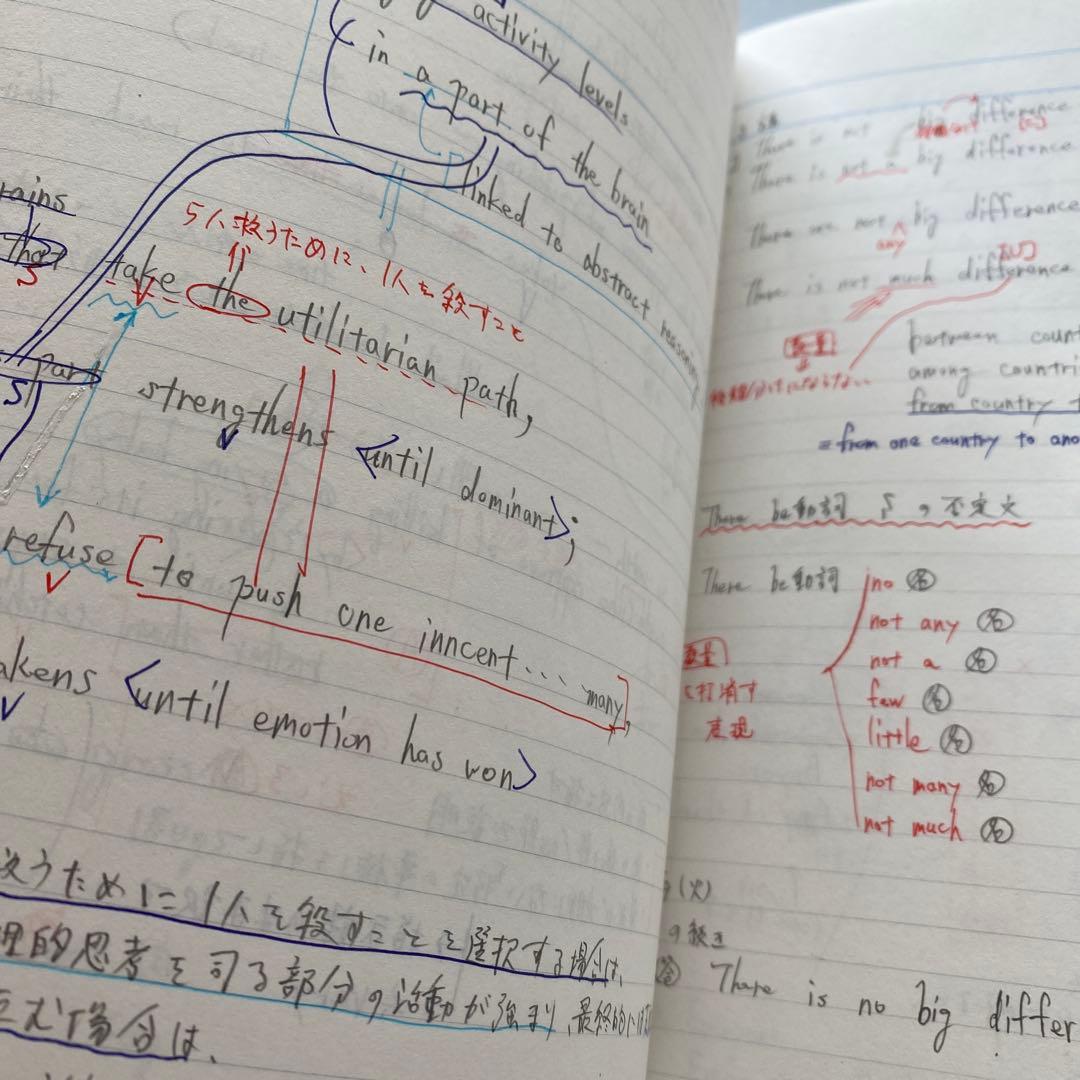 activity levels
in a part of the brain
linked to abstract reasoning
rains
that
S
5人救うために、1人を殺すこと
take the utilitarian path,
V
part
S
strengthens <until dominant>;
V
refuse [to push one inncent... many],
V
akens <until emotion has won>
V
救うために1人を殺すことを選択する場合は、
理的思考を司る部分の活動が強まり、最終的に
場合は、
There is not big difference
There is not a big difference
There are not big difference
any
There is not much difference
[U]
数量
between count
among countri
from country t
= from one country to ano
There be動詞 S の否定文
There be動詞
no 名
not any 名
not a 名
few 名
little 名
not many 名
not much 名
数量
を打消す
表現
(火)
の続き
There is no big differ